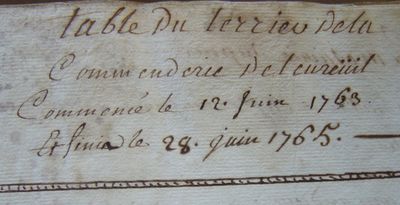 table Du terrier de la
Commenderie De Leureüil
Commencé le 12. Juin 1763.
Et finie le 28. juin 1765.